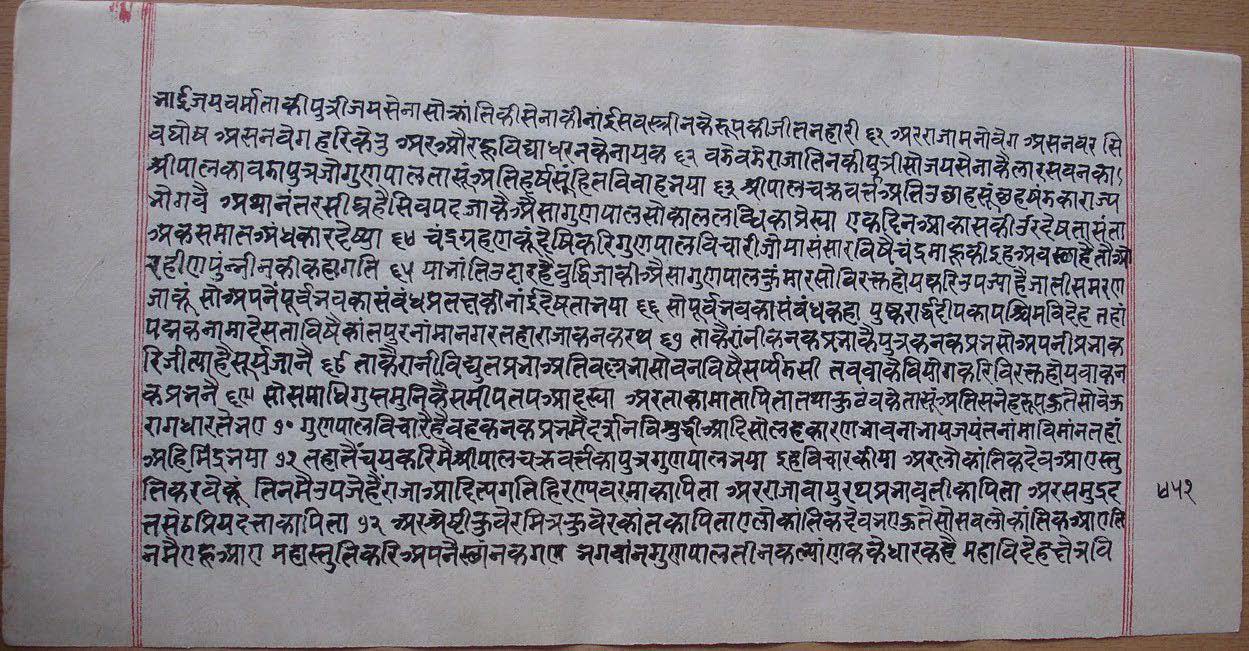 भाई जयवर्मा ताकी पुत्री जयसेना सो क्रांति की सेना की नांई सब स्त्रीन के रूप की जीतनहारी ६१ अर राजा मनोवेग असनवर सि
वघोष असनवेग हरिकेतु अर और हू विद्याधरन के नायक ६२ बडे बडे राजा तिन की पुत्री सो जयसेना के लार सबन का
श्रीपाल का बडा पुत्र जो गुणपाल तासूं अति हर्ष सूं हित विवाह भया ६३ श्रीपाल चक्रवर्त्त अति उछाह सूं छह षंड का राज्य
भोगवै अथानंतर सीघ्र है सिवपद जाकै ऐसा गुणपाल सो काललब्धि का प्रेस्या एक दिन आकास की उर देषता संता
अकसमात अंधकार देष्या ६४ चंद्रग्रहण कूं देषि करि गुणपाल विचारी जो या संसार विषै चंद्रमा हू की इह अवस्था है तौ औ
र हीण पुंन्नीन की कहा गति ६५ या भांति उदार है बुद्धि जाकी ऐसा गुणपाल कुंमार सो विरक्त होय करि उपज्या है जातीसमरण
जाकूं सो अपनें पूर्वभव का संबंध प्रतक्ष की नांई देषता भया ६६ सो पूर्वभव का संबंध कहा पुष्करार्द्ध दीप का पश्चिम विदेह तहां
पद्मक नामा देस ता विषै कांतपुर नांमा नगर तहा राजा कनकरथ ६७ ताकै रांनी कनकप्रभा कै पुत्र कनकप्रभ सो अपनी प्रभा क
रि जीत्या है सूर्य जानै ६८ ताकै रानी विद्युतप्रभा अति वल्लभा सो वन विषै सर्प्प डसी तब वाके वियोग करि विरक्त होय वा कन
कप्रभ नै ६९ सो समाधिगुप्त मुनि कै समीप तप आदस्या अर ताका माता पिता तथा कुटंब के तासूं अति सनेहरूप हुते सो वै रू
राग धारते भए ७० गुणपाल विचारै है वह कनकप्रभ मै दर्शनविशुद्धी आदि सोलहकारण भावना भाय जयंत नांमा विमांन तहां
अहिमिंद्र भया ७१ तहा तैं चय करि मै श्रीपाल चक्रवर्त्त का पुत्र गुणपाल भया इह विचार कीया अर लोकांतिक देव आए स्तु
ति करवे कूं तिन मै उपजे हैं राजा आदित्यगति हिरण्यवरमा का पिता अर राजा वायुरथ प्रभावती का पिता अर समुद्रद
त्त सेठ प्रियदत्ता का पिता ७२ अर श्रेष्ठी कुवेरमित्र कुवेरकांत का पिता ए लोकांतिक देव भए हुते सो सब लोकांतिक आए ति
न मै ए हू आए महास्तुति करि अपनै स्थांनक गए भगवांन गुणपाल तीन कल्यांणक के धारक है महाविदेह क्षेत्र वि
४५२